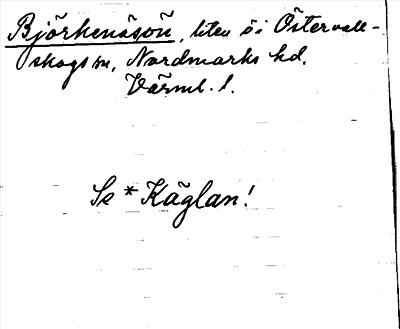 Björkenäsön, liten ö i Östervall-
skogs sn, Nordmarks hd,
Värml. l.
Se *Käglan!